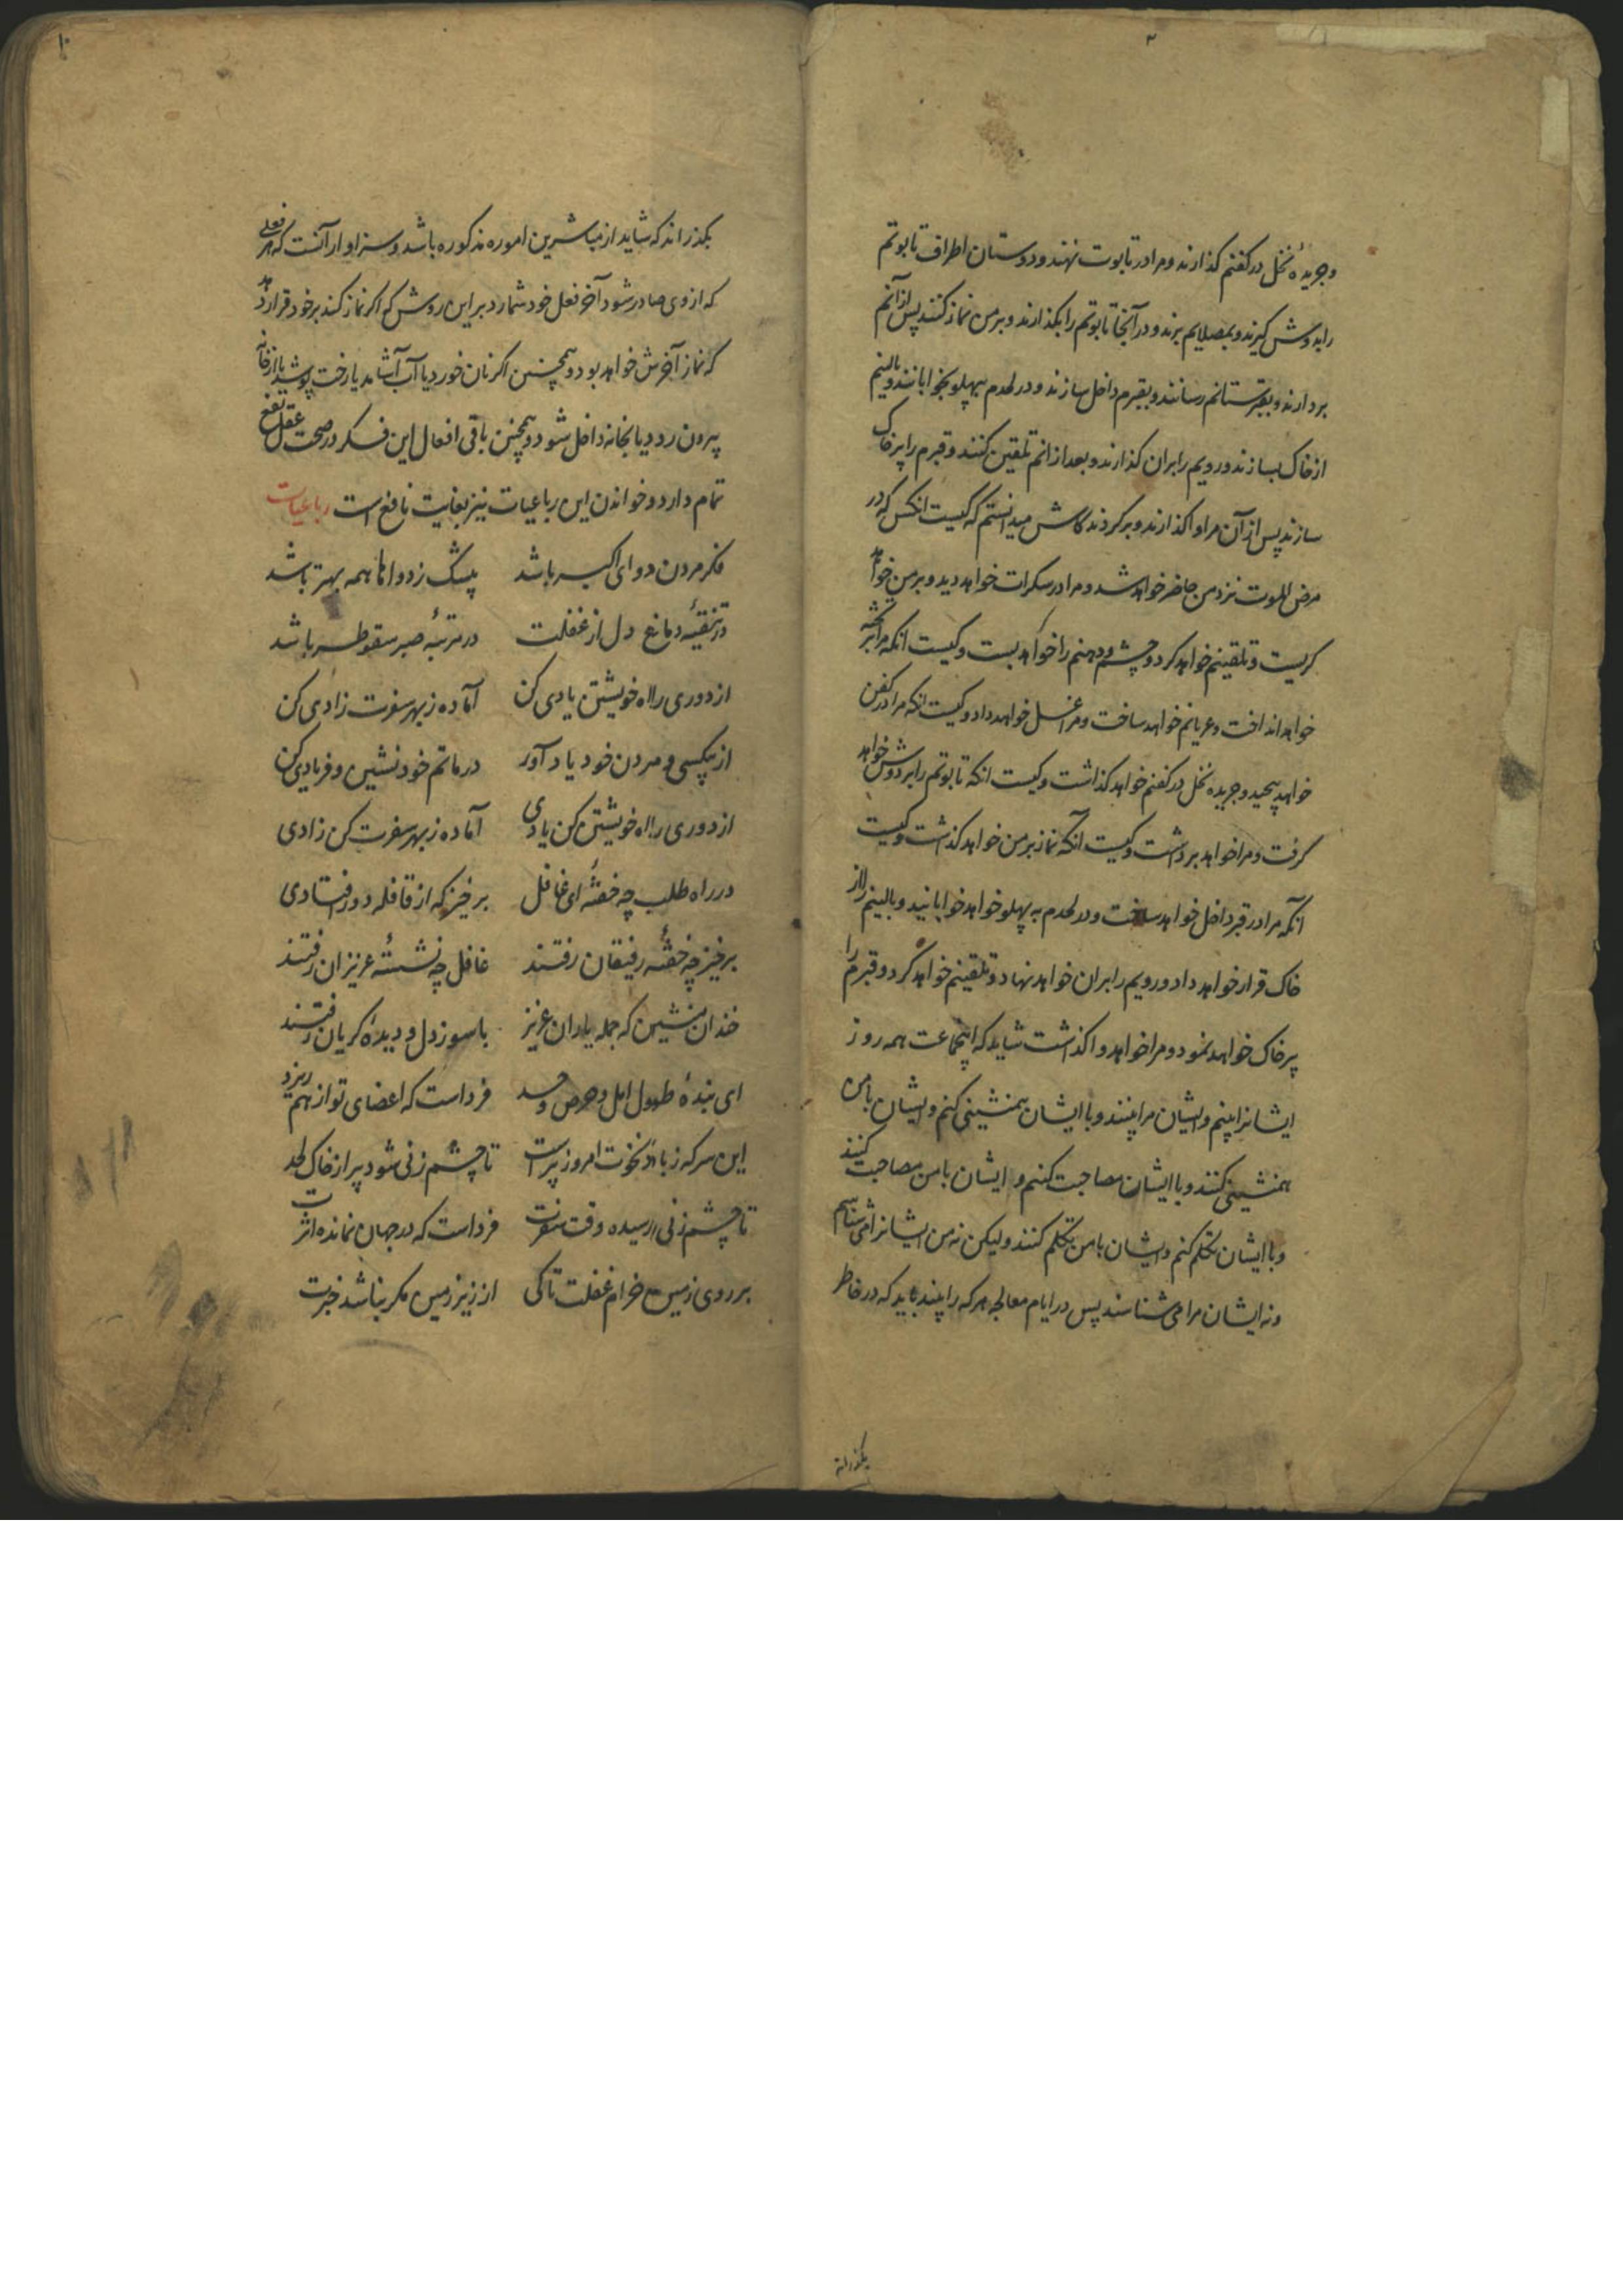 ۲
وجریدهٔ نخل در کفنم کذارند ومرا در تابوت نهند ودوستان اطراف تابوتم
را بدوش کیرند وبمصلایم برند ودر آنجا تابوتم را بکذارند وبر من نماز کنند پس از آنم
بردارند وبقبرستانم رسانند وبقبرم داخل سازند ودر لحدم بپهلو بخوابانند وبالینم
از خاک بسازند ورویم را بران کذارند وبعد از انم تلقین کنند وقبرم را پر خاک
سازند پس از آن مرا واکذارند وبرکردند کاش میدانستم که کیست انکس که در
مرض الموت نزد من حاضر خواهد شد ومرا در سکرات خواهد دید وبر من خواهد
کریست وتلقینم خواهد کرد وچشم ودهنم را خواهد بست وکیست انکه مرا بر تخته
خواهد انداخت وعریانم خواهد ساخت ومرا غسل خواهد داد وکیست انکه مرا در کفن
خواهد پیچید وجریده نخل در کفنم خواهد کذاشت وکیست انکه تابوتم را بر دوش خواهد
کرفت ومرا خواهد برداشت وکیست آنکه نماز بر من خواهد کذاشت وکیست
آنکه مرا در قبر داخل خواهد ساخت ودر لحدم به پهلو خواهد خوابانید وبالینم را از
خاک قرار خواهد داد ورویم را بران خواهد نهاد وتلقینم خواهد کرد وقبرم را
پر خاک خواهد نمود ومرا خواهد واکذاشت شاید که اینجماعت همه روز
ایشانرا بینم وایشان مرا بینند وبا ایشان همنشینی کنم وایشان با من
همنشینی کنند وبا ایشان مصاحبت کنم و ایشان با من مصاحبت کنند
وبا ایشان تکلم کنم وایشان با من تکلم کنند ولیکن نه من ایشانرا می شناسم
ونه ایشان مرا می شناسند پس در ایام معالجه هر که را بیند باید که در خاطر
بکذراند
۱۰
بکذراند که شاید از مباشرین اموره مذکوره باشد وسزاوار آنست که هر فعلی
که از وی صادر شود آخر فعل خود شمارد بر این روش که اکر نماز کند بر خود قرار دهد
که نماز آخرش خواهد بود وهمچنین اکر نان خورد یا آب آشامد یا رخت پوشد یا از خانه
بیرون رود یا بخانه داخل شود وهمچنین باقی افعال این فکر در صحت عقل نفع
تمام دارد وخواندن این رباعیات نیز بغایت نافع است رباعیات
فکر مردن دوای اکبر باشد پیشک ز دواها همه بهتر باشد
در تنقیهٔ دماغ دل از غفلت در مرتبهٔ صبر سقوطر باشد
از دوری راه خویشتن یادی کن آماده ز بهر سفرت زادی کن
از بیکسی و مردن خود یاد آور در ماتم خود نشین و فریادی کن
از دوری راه خویشتن کن یادی آماده ز بهر سفرت کن زادی
در راه طلب چه خفتهٔ ای غافل برخیز که از قافله دور افتادی
برخیز چه خفتهٔ رفیقان رفتند غافل چه نشستهٔ عزیزان رفتند
خندان منشین که جمله یاران عزیز با سوز دل و دیدهٔ کریان رفتند
ای بندهٔ طول امل وحرص وحسد فرداست که اعضای تو از هم ریزد
این سر که ز باد نخوت امروز پر است تا چشم زنی شود پر از خاک لحد
تا چشم زنی رسیده وقت سفرت فرداست که در جهان نمانده اثرت
بر روی زمین خرام غفلت تا کی از زیر زمین مکر نباشد خبرت